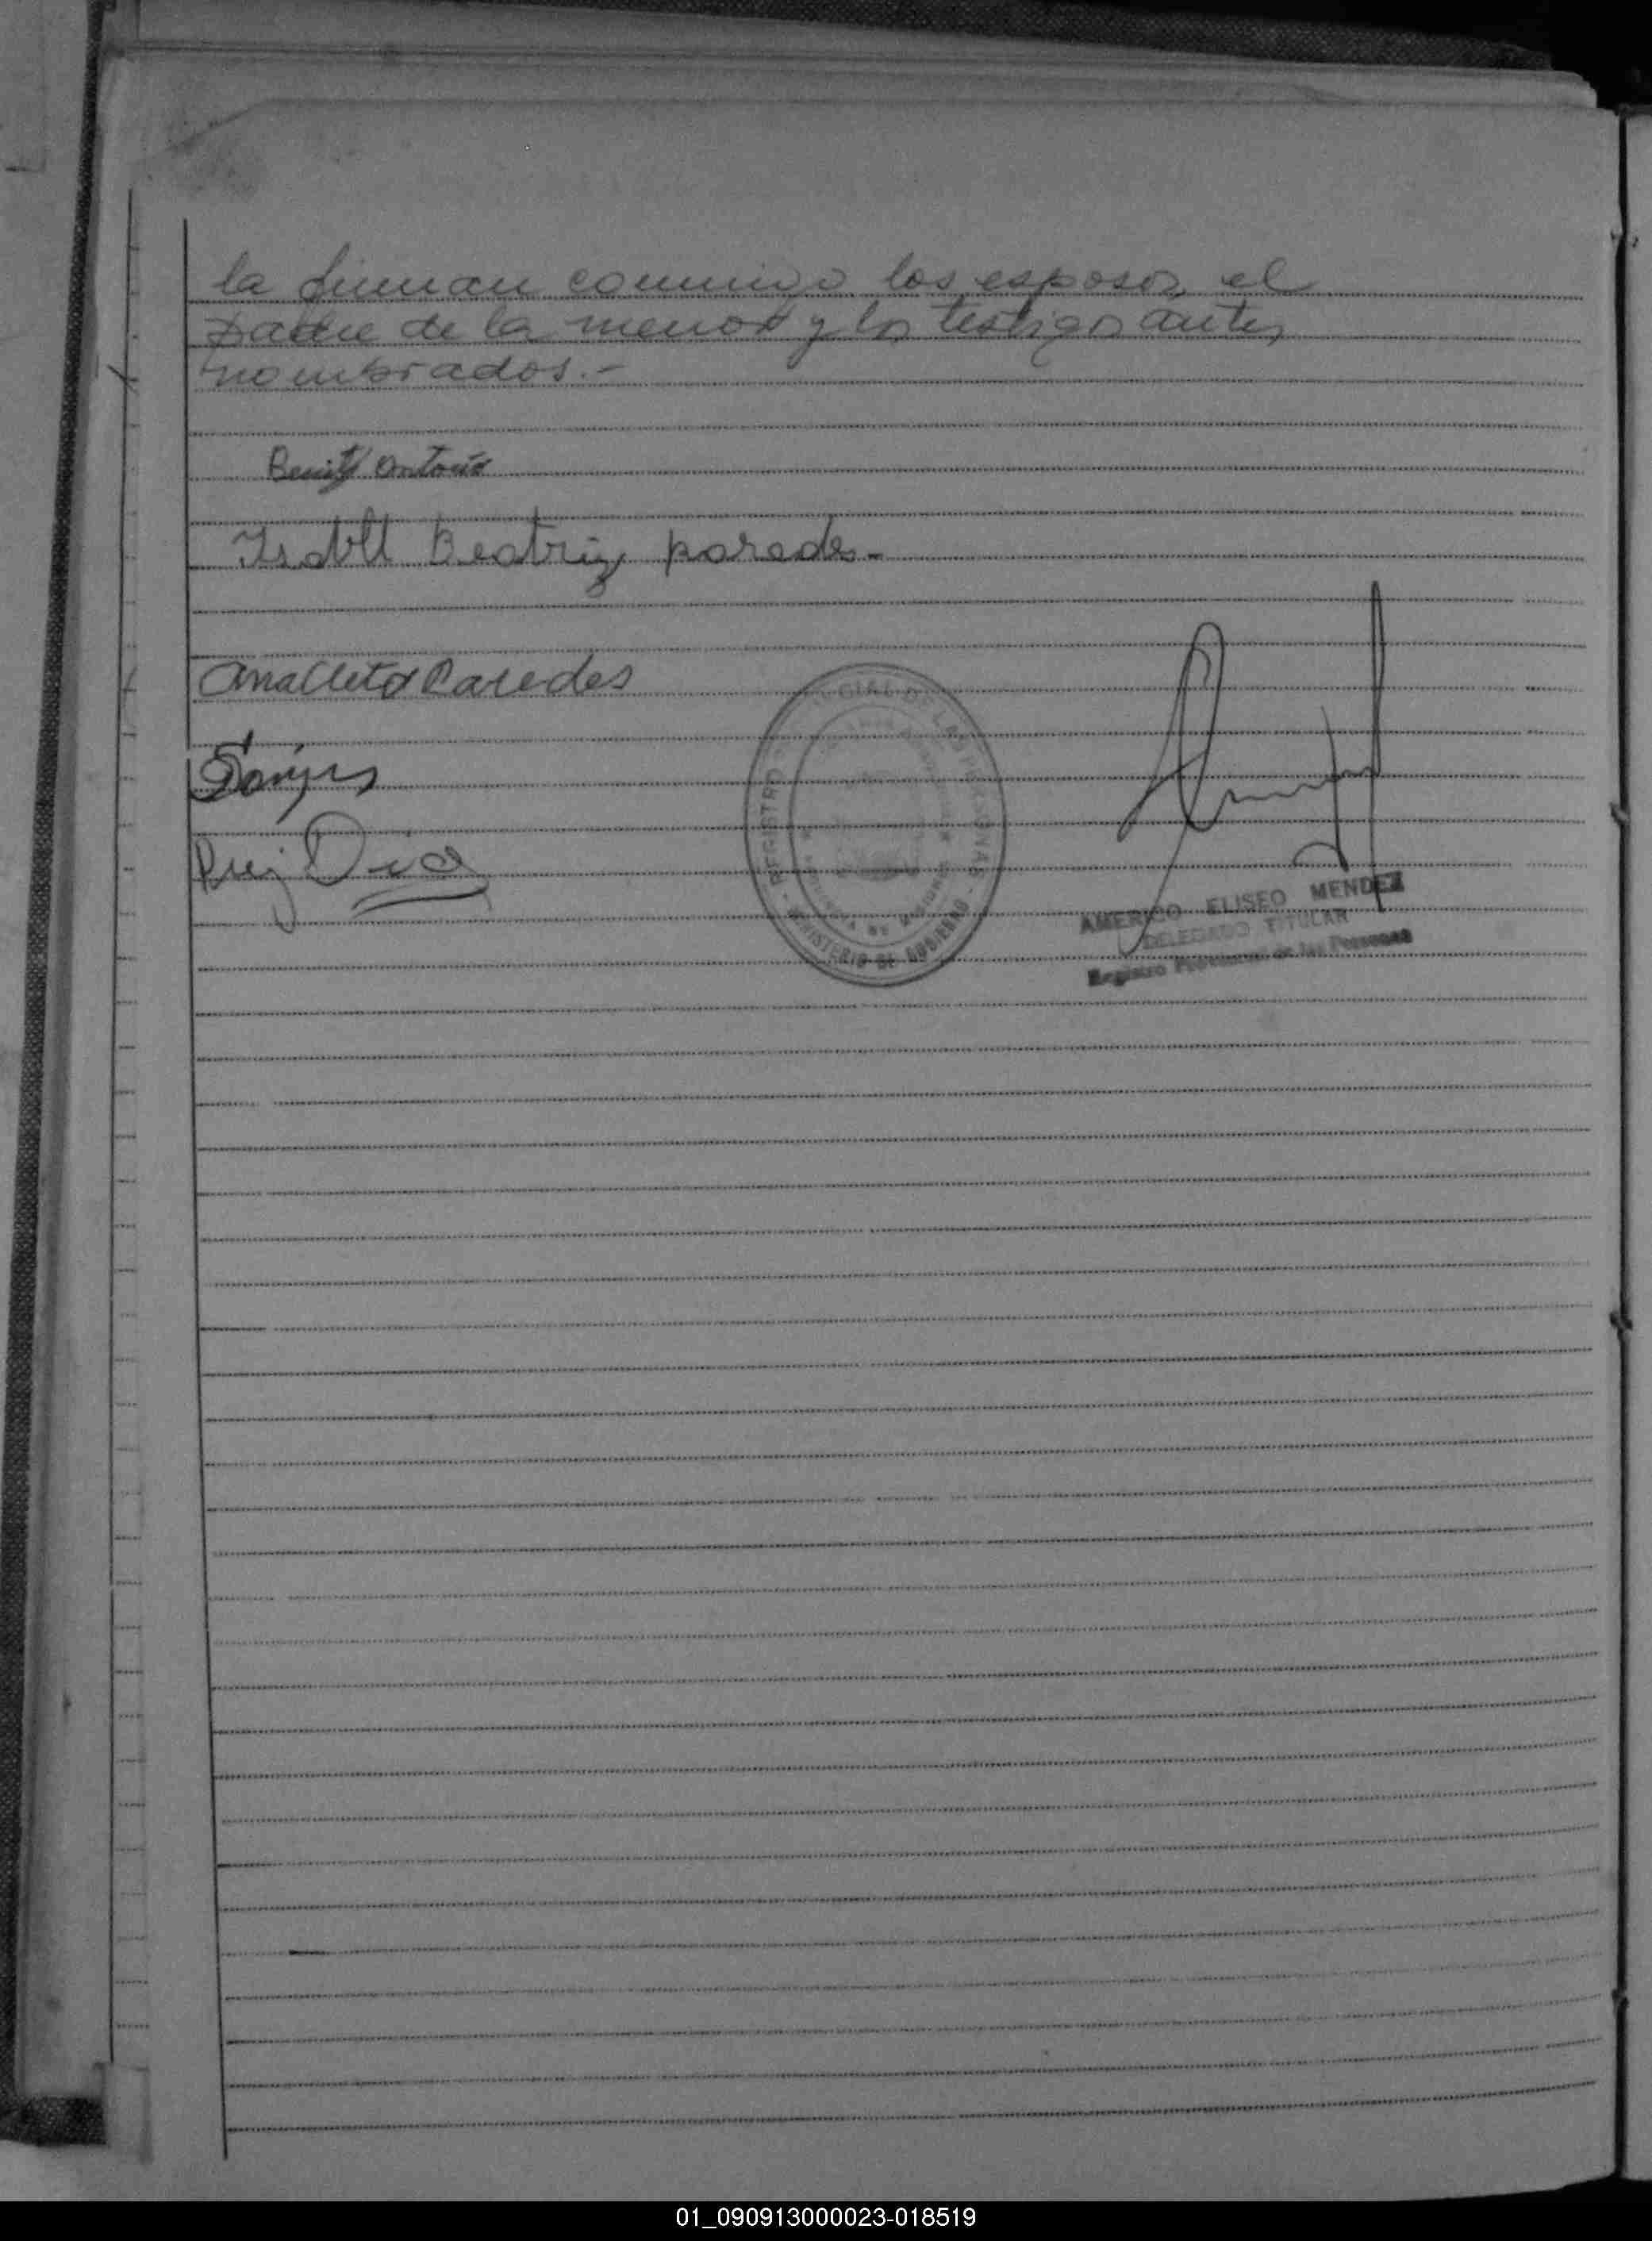 la firman conmigo los esposos, el
padre de la menor y los testigos antes
nombrados.-
Benitz Antonio
Isabll Beatriz paredes-
Anacleto Paredes
Díaz
REGISTRO PROVINCIAL DE LAS PERSONAS
MINISTERIO DE GOBIERNO
AMERICO ELISEO MENDEZ
DELEGADO TITULAR
Registro Provincial de las Personas
01_090913000023-018519